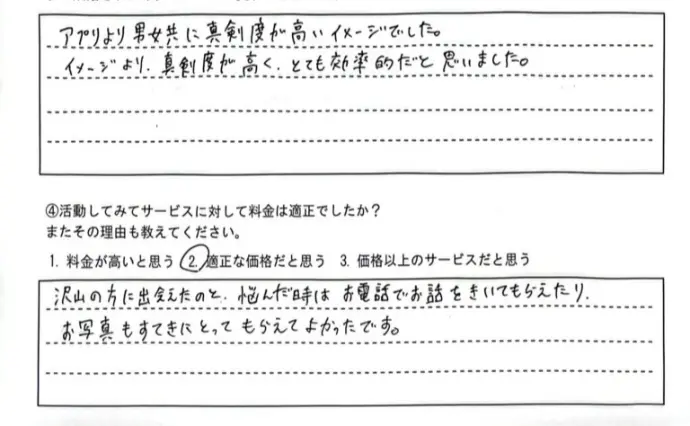 アプリより男女共に真剣度が高いイメージでした。
イメージより、真剣度が高く、とても効率的だと思いました。
④活動してみてサービスに対して料金は適正でしたか？
またその理由も教えてください。
1. 料金が高いと思う 2. 適正な価格だと思う 3. 価格以上のサービスだと思う
沢山の方に出会えたのと、悩んだ時はお電話でお話をきいてもらえたり、
お写真もすてきにとってもらえてよかったです。